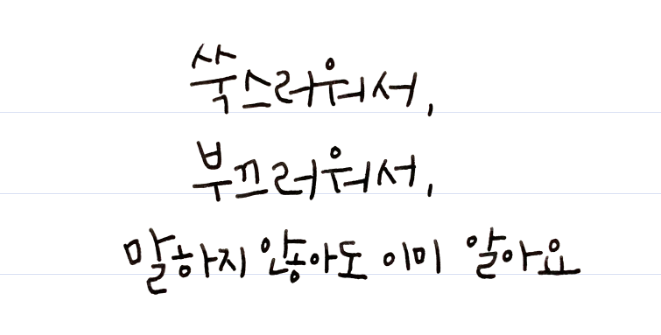 쑥스러워서,
부끄러워서,
말하지 않아도 이미 알아요